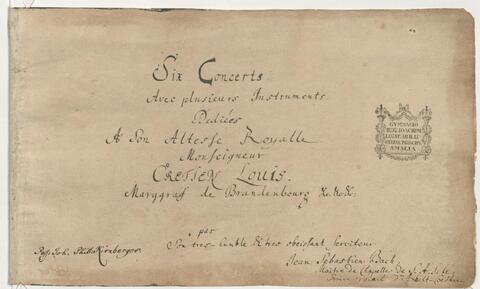 Six Concerts
Avec plusieurs Instruments.
Dediées
A Son Altesse Royalle
Monseigneur
CRETIEN LOUIS.
Marggraf de Brandenbourg &c. &c. &c.
par
Son tres-humble & tres obeissant Serviteur
Jean Sebastien Bach,
Maitre de Chapelle de S. A. S. le
Prince regnant d'Anhalt-Coethen
Poss. Joh. Phil. Kirnberger
GYMNASIO
REG. IOACHIM
LEGAT. AB ILLU
PRINCIP.
AMALIA